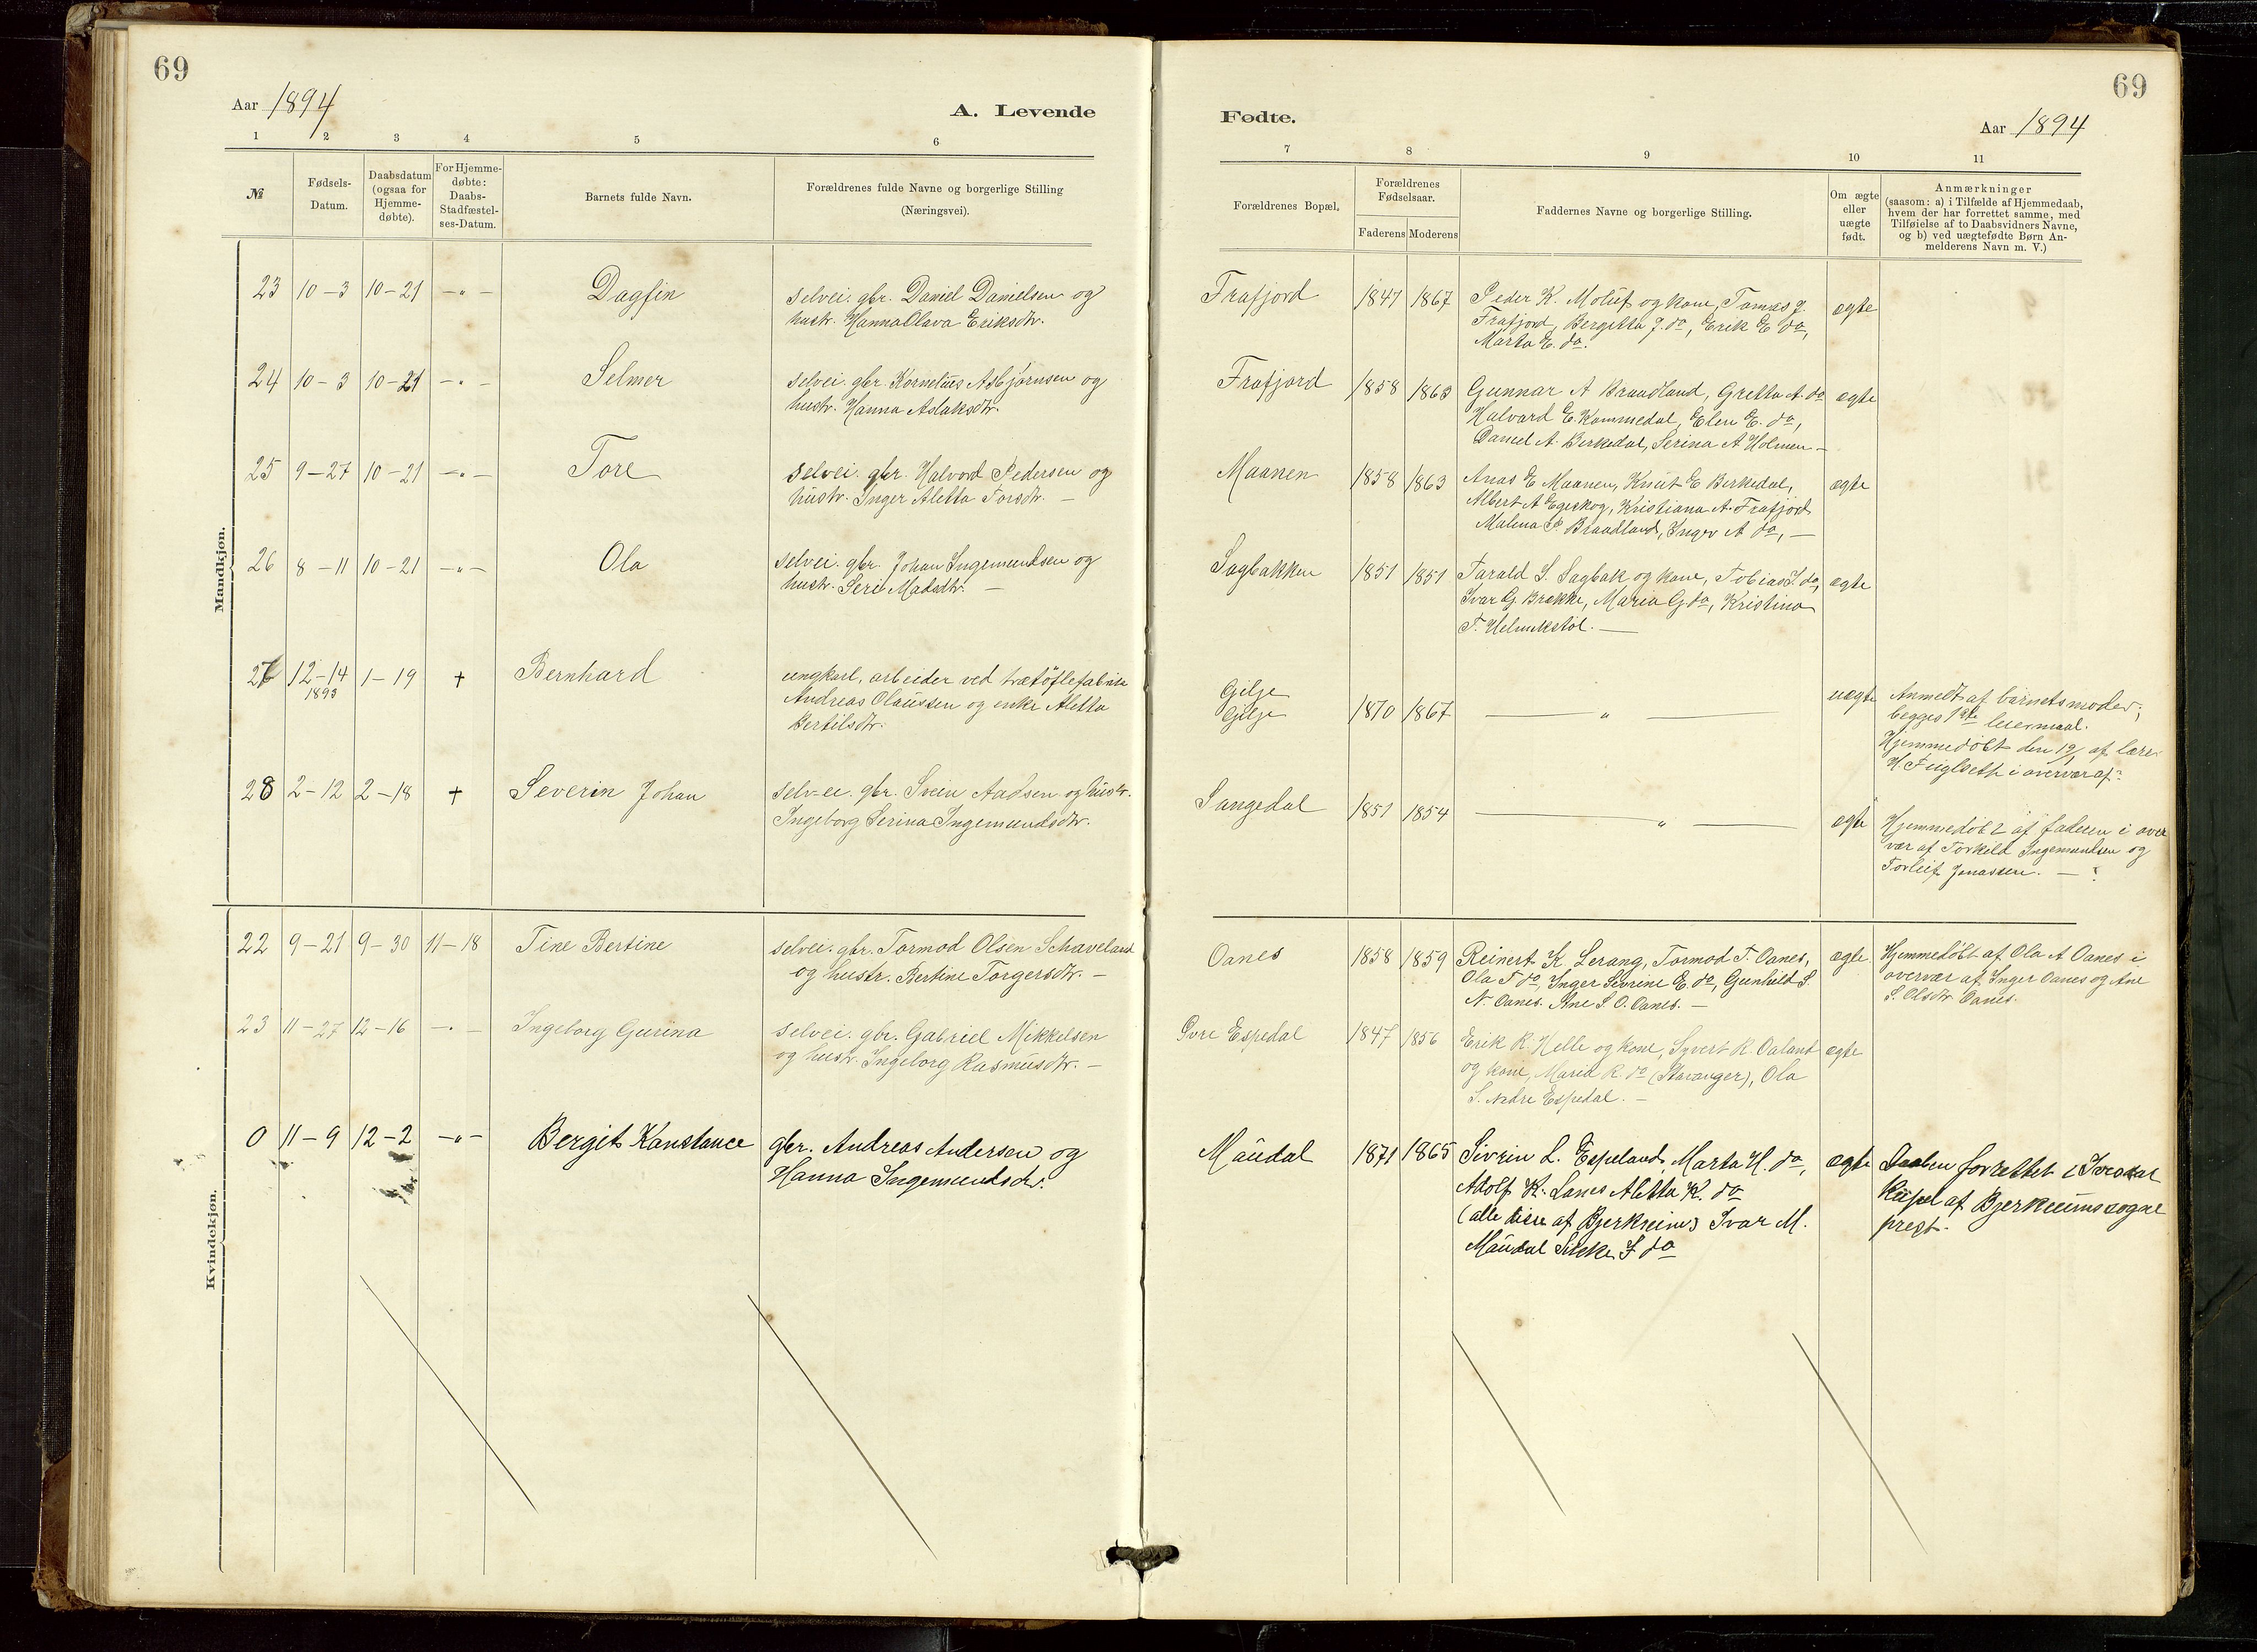 69
Aar 1894
A. Levende
1 2 3 4 5 6
№
Fødsels-Datum.
Daabsdatum (ogsaa for Hjemme-døbte).
For Hjemme-døbte: Daabs-Stadfæstel-ses-Datum.
Barnets fulde Navn.
Forældrenes fulde Navne og borgerlige Stilling
(Næringsvei).
Mandkjøn.
23 10-3 10-21 -"- Dagfin selvei. gbr. Daniel Danielsen og
hustr. Hanna Olava Eriksdtr.
24 10-3 10-21 -"- Selmer selvei. gbr. Kornelius Asbjørnsen og
hustr. Hanna Aslaksdtr.
25 9-27 10-21 -"- Tore selvei. gbr. Halvord Pedersen og
hustr. Inger Aletta Torsdtr. -
26 8-11 10-21 -"- Ola selvei. gbr. Johan Ingemundsen og
hustr. Seri Madsdtr. -
27 12-14 1893 1-19 + Bernhard ungkarl, arbeider ved trætöflefabrik
Andreas Olaussen og enke Aletta
Bertilsdtr.
28 2-12 2-18 + Severin Johan selv-ei. gbr. Svein Aadsen og hustr.
Ingeborg Serina Ingemundsdtr.
Kvindekjøn.
22 9-21 9-30 11-18 Tine Bertine selvei. gbr. Tormod Olsen Schaveland
og hustr. Bertine Torgersdtr. -
23 11-27 12-16 -"- Ingeborg Gurina selvei. gbr. Gabriel Mikkelsen
og hustr. Ingeborg Rasmusdtr. -
0 11-9 12-2 -"- Bergit Konstance gbr. Andreas Andersen og
Hanna Ingemundsdtr.
69
Fødte.
Aar 1894
7 8 9 10 11
Forældrenes Bopæl.
Forældrenes Fødselsaar.
Faderens Moderens
Faddernes Navne og borgerlige Stilling.
Om ægte eller uægte født.
Anmærkninger
(saasom: a) i Tilfælde af Hjemmedaab,
hvem der har forrettet samme, med
Tilføielse af to Daabsvidners Navne,
og b) ved uægtefødte Børn An-
melderens Navn m. V.)
Frafjord 1847 1867 Peder K. Moluf og kone, Tomas J. ægte
Frafjord, Bergitta J. do, Erik E do,
Marta E. do.
Frafjord 1858 1863 Gunnar A Braadland, Gretta A. do ægte
Halvard E. Kommedal, Elen E. do,
Daniel A. Birkedal, Serina A Holmen -
Maanen 1858 1863 Anas E Maanen, Knut E Birkedal, ægte
Albert A Egeskog, Kristiana A. Frafjord
Malena P. Braadland, Inger A do, -
Sagbakken 1851 1851 Tarald S. Sagbak og kone, Tobias I. do, ægte
Ivar G. Brække, Maria G do, Kristina
T. Helmikstøl. -
Gilje
Gilje 1870 1867 - " - uægte Anmeldt af barnets moder;
begges 1ste leiermaal.
Hjemmedöbt den 19/1 af lærer
H. Fuglseth i overvær af:
Sangedal 1851 1854 - " - ægte Hjemmedöbt af faderen i over
vær af Torkild Ingemundsen og
Torleif Jonassen. -
Oanes 1858 1859 Reinert K. Lerang, Tormod T. Oanes, ægte Hjemmedöbt af Ola A Oanes i
Ola T do, Inger Sivrine E. do, Gunhild S. overvær af Inger Oanes og Ane
N. Oanes. Ane S. O. Oanes. - S. Olsdtr Oanes.
Øvre Espedal 1847 1856 Erik R. Helle og kone, Syvert R. Oaland ægte
og kone, Maria R. do (Stavanger), Ola
S. Nedre Espedal. -
Maudal 1871 1865 Sivrin L. Espeland, Marta H. do, ægte Daaben forrettet i
Adolf K. Lanes Aletta K. do Kapel af Bjerkreims sogne
(alle disse af Bjerkreim) Ivar M. prest.
Maudal Sikke I do